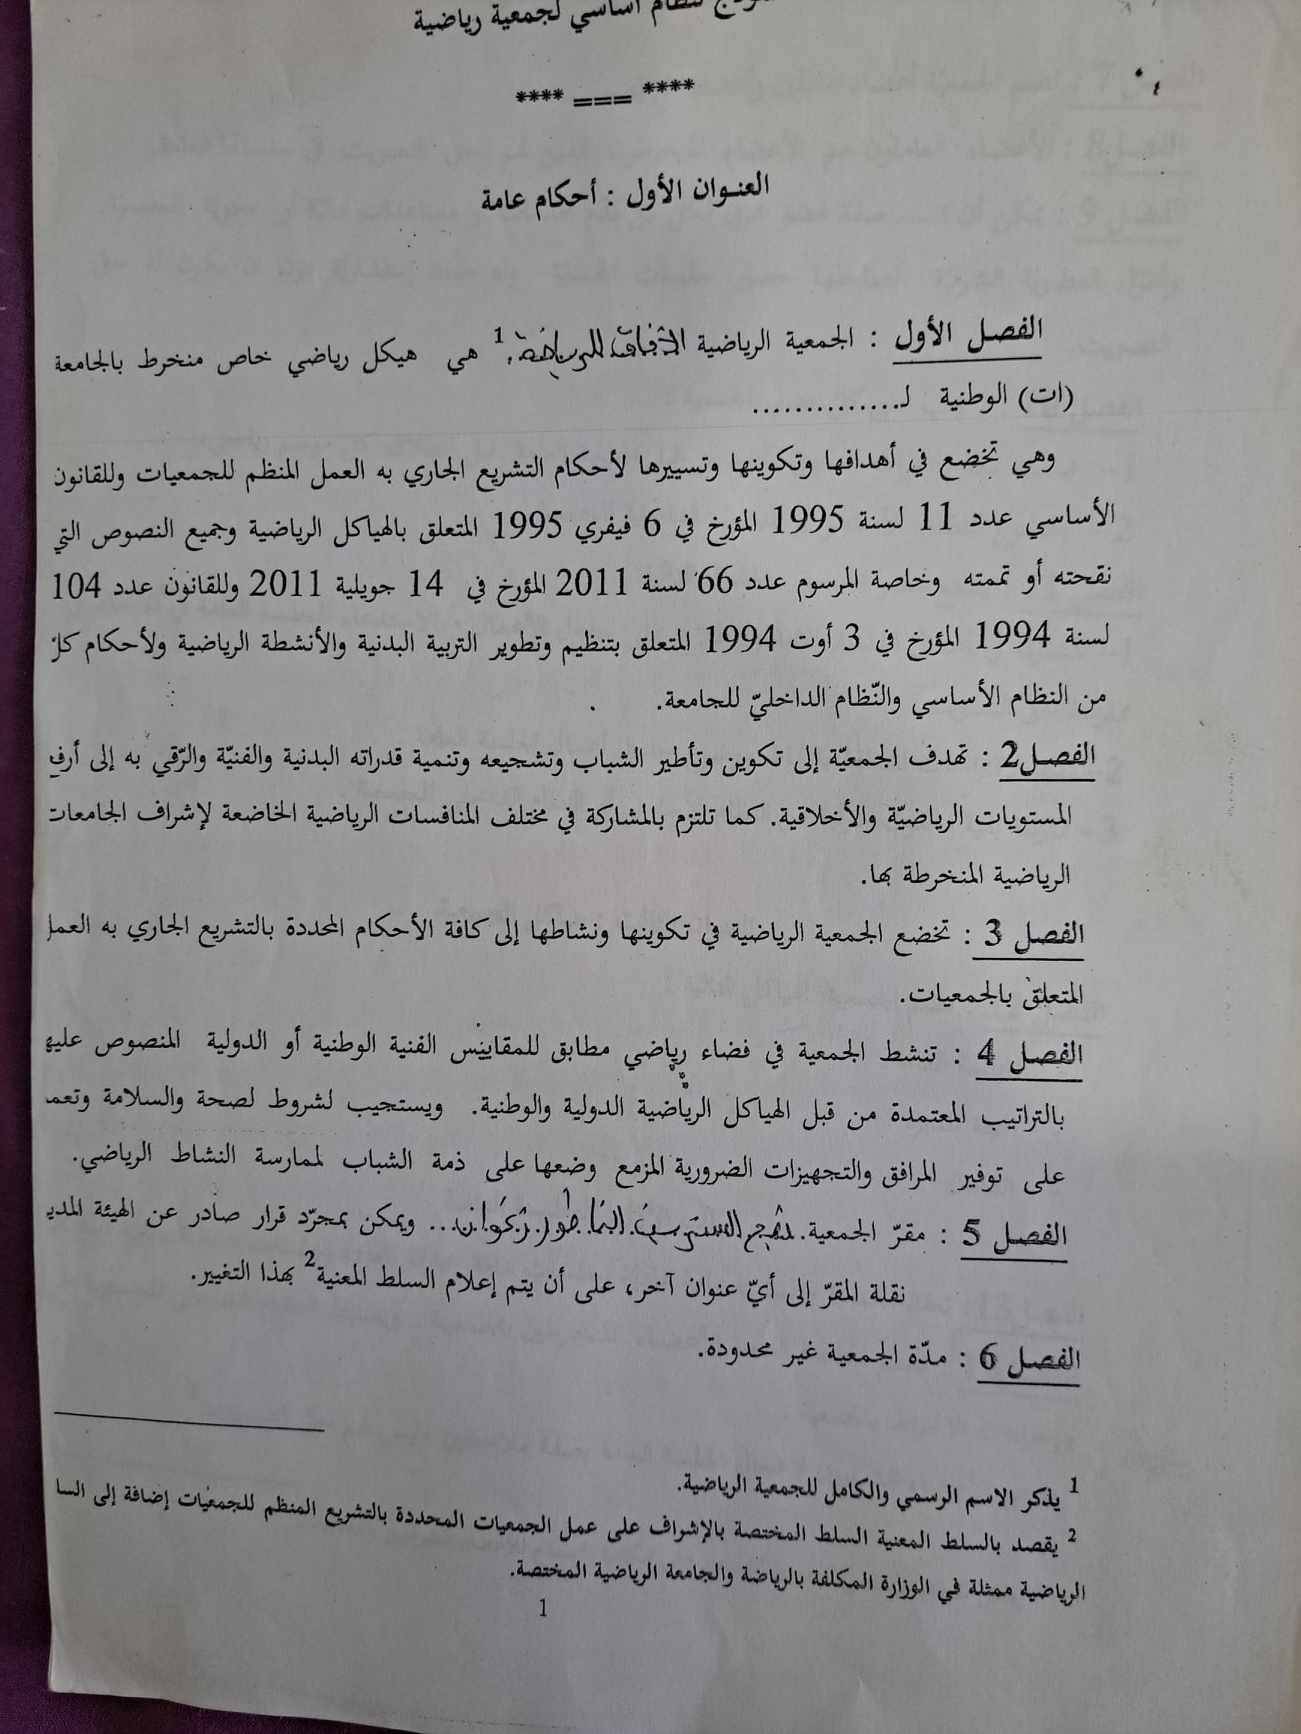 نموذج لنظام أساسي لجمعية رياضية
**** === ****
العنوان الأول : أحكام عامة
الفصل الأول : الجمعية الرياضية الآفاق للرياضة.1 هي هيكل رياضي خاص منخرط بالجامعة
(ات) الوطنية لـ..............
وهي تخضع في أهدافها وتكوينها وتسييرها لأحكام التشريع الجاري به العمل المنظم للجمعيات وللقانون
الأساسي عدد 11 لسنة 1995 المؤرخ في 6 فيفري 1995 المتعلق بالهياكل الرياضية وجميع النصوص التي
نقحته أو تممته وخاصة المرسوم عدد 66 لسنة 2011 المؤرخ في 14 جويلية 2011 وللقانون عدد 104
لسنة 1994 المؤرخ في 3 أوت 1994 المتعلق بتنظيم وتطوير التربية البدنية والأنشطة الرياضية ولأحكام كلّ
من النظام الأساسي والنّظام الداخليّ للجامعة.
الفصل2 : تهدف الجمعيّة إلى تكوين وتأطير الشباب وتشجيعه وتنمية قدراته البدنية والفنيّة والرّقي به إلى أرفع
المستويات الرياضيّة والأخلاقية. كما تلتزم بالمشاركة في مختلف المنافسات الرياضية الخاضعة لإشراف الجامعات
الرياضية المنخرطة بها.
الفصل 3 : تخضع الجمعية الرياضية في تكوينها ونشاطها إلى كافة الأحكام المحددة بالتشريع الجاري به العمل
المتعلق بالجمعيات.
الفصل 4 : تنشط الجمعية في فضاء رياضي مطابق للمقاييس الفنية الوطنية أو الدولية المنصوص عليها
بالتراتيب المعتمدة من قبل الهياكل الرياضية الدولية والوطنية. ويستجيب لشروط لصحة والسلامة وتعمل
على توفير المرافق والتجهيزات الضرورية المزمع وضعها على ذمة الشباب لممارسة النشاط الرياضي.
الفصل 5 : مقرّ الجمعية. ... ويمكن بمجرّد قرار صادر عن الهيئة المدير
نقلة المقرّ إلى أيّ عنوان آخر، على أن يتم إعلام السلط المعنية2 بهذا التغيير.
الفصل 6 : مدّة الجمعية غير محدودة.
1 يذكر الاسم الرسمي والكامل للجمعية الرياضية.
2 يقصد بالسلط المعنية السلط المختصة بالإشراف على عمل الجمعيات المحددة بالتشريع المنظم للجمعيات إضافة إلى السا
الرياضية ممثلة في الوزارة المكلفة بالرياضة والجامعة الرياضية المختصة.
1